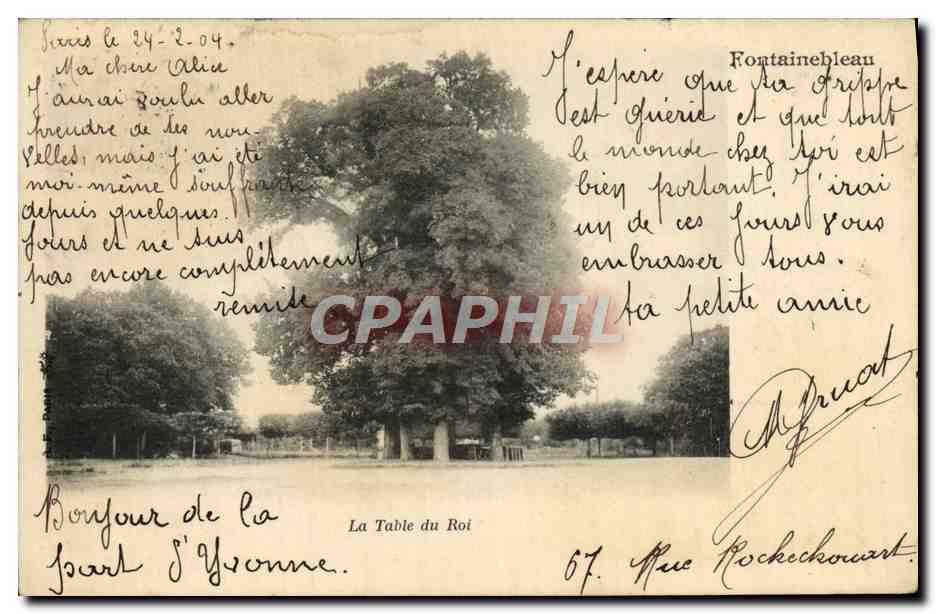 Paris le 24-2-04.
Ma chère Alice
J'aurai voulu aller
prendre de tes nou-
velles, mais J'ai été
moi-même souffrante
depuis quelques
Jours et ne suis
pas encore complètement
remise
Fontainebleau
J'espère que ta grippe
est guérie et que tout
le monde chez toi est
bien portant. J'irai
un de ces Jours vous
embrasser tous.
ta petite amie
CPAPHIL
La Table du Roi
Bonjour de la
part d'Yvonne.
67. Rue Rochechouart.